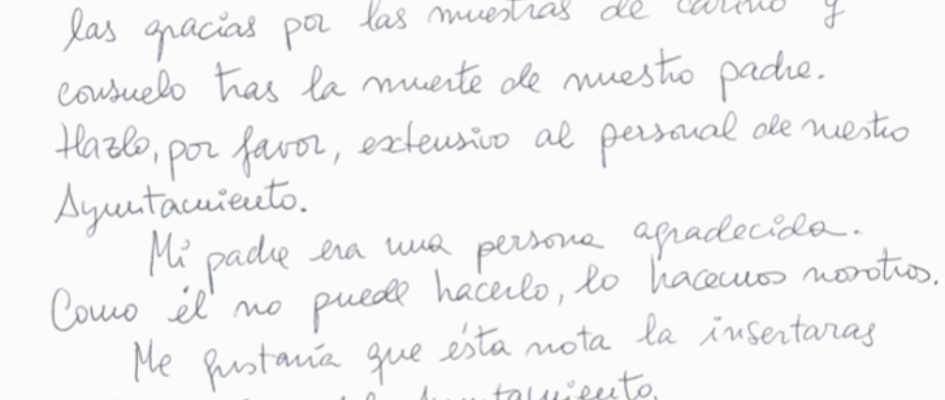 las gracias por las muestras de cariño y
consuelo tras la muerte de nuestro padre.
Hazlo, por favor, extensivo al personal de nuestro
Ayuntamiento.
Mi padre era una persona agradecida.
Como él no puede hacerlo, lo hacemos nosotros.
Me gustaría que ésta nota la insertaras
Ayuntamiento.